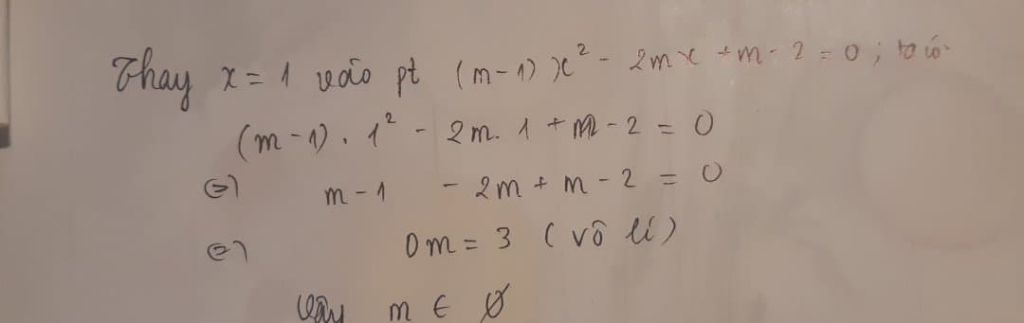 Thay x = 1 vào pt (m-1)x² - 2mx + m - 2 = 0; ta có
(m-1). 1² - 2m. 1 + m - 2 = 0
⇔ m - 1 - 2m + m - 2 = 0
⇔ 0m = 3 (vô lí)
Vậy m ∈ ∅